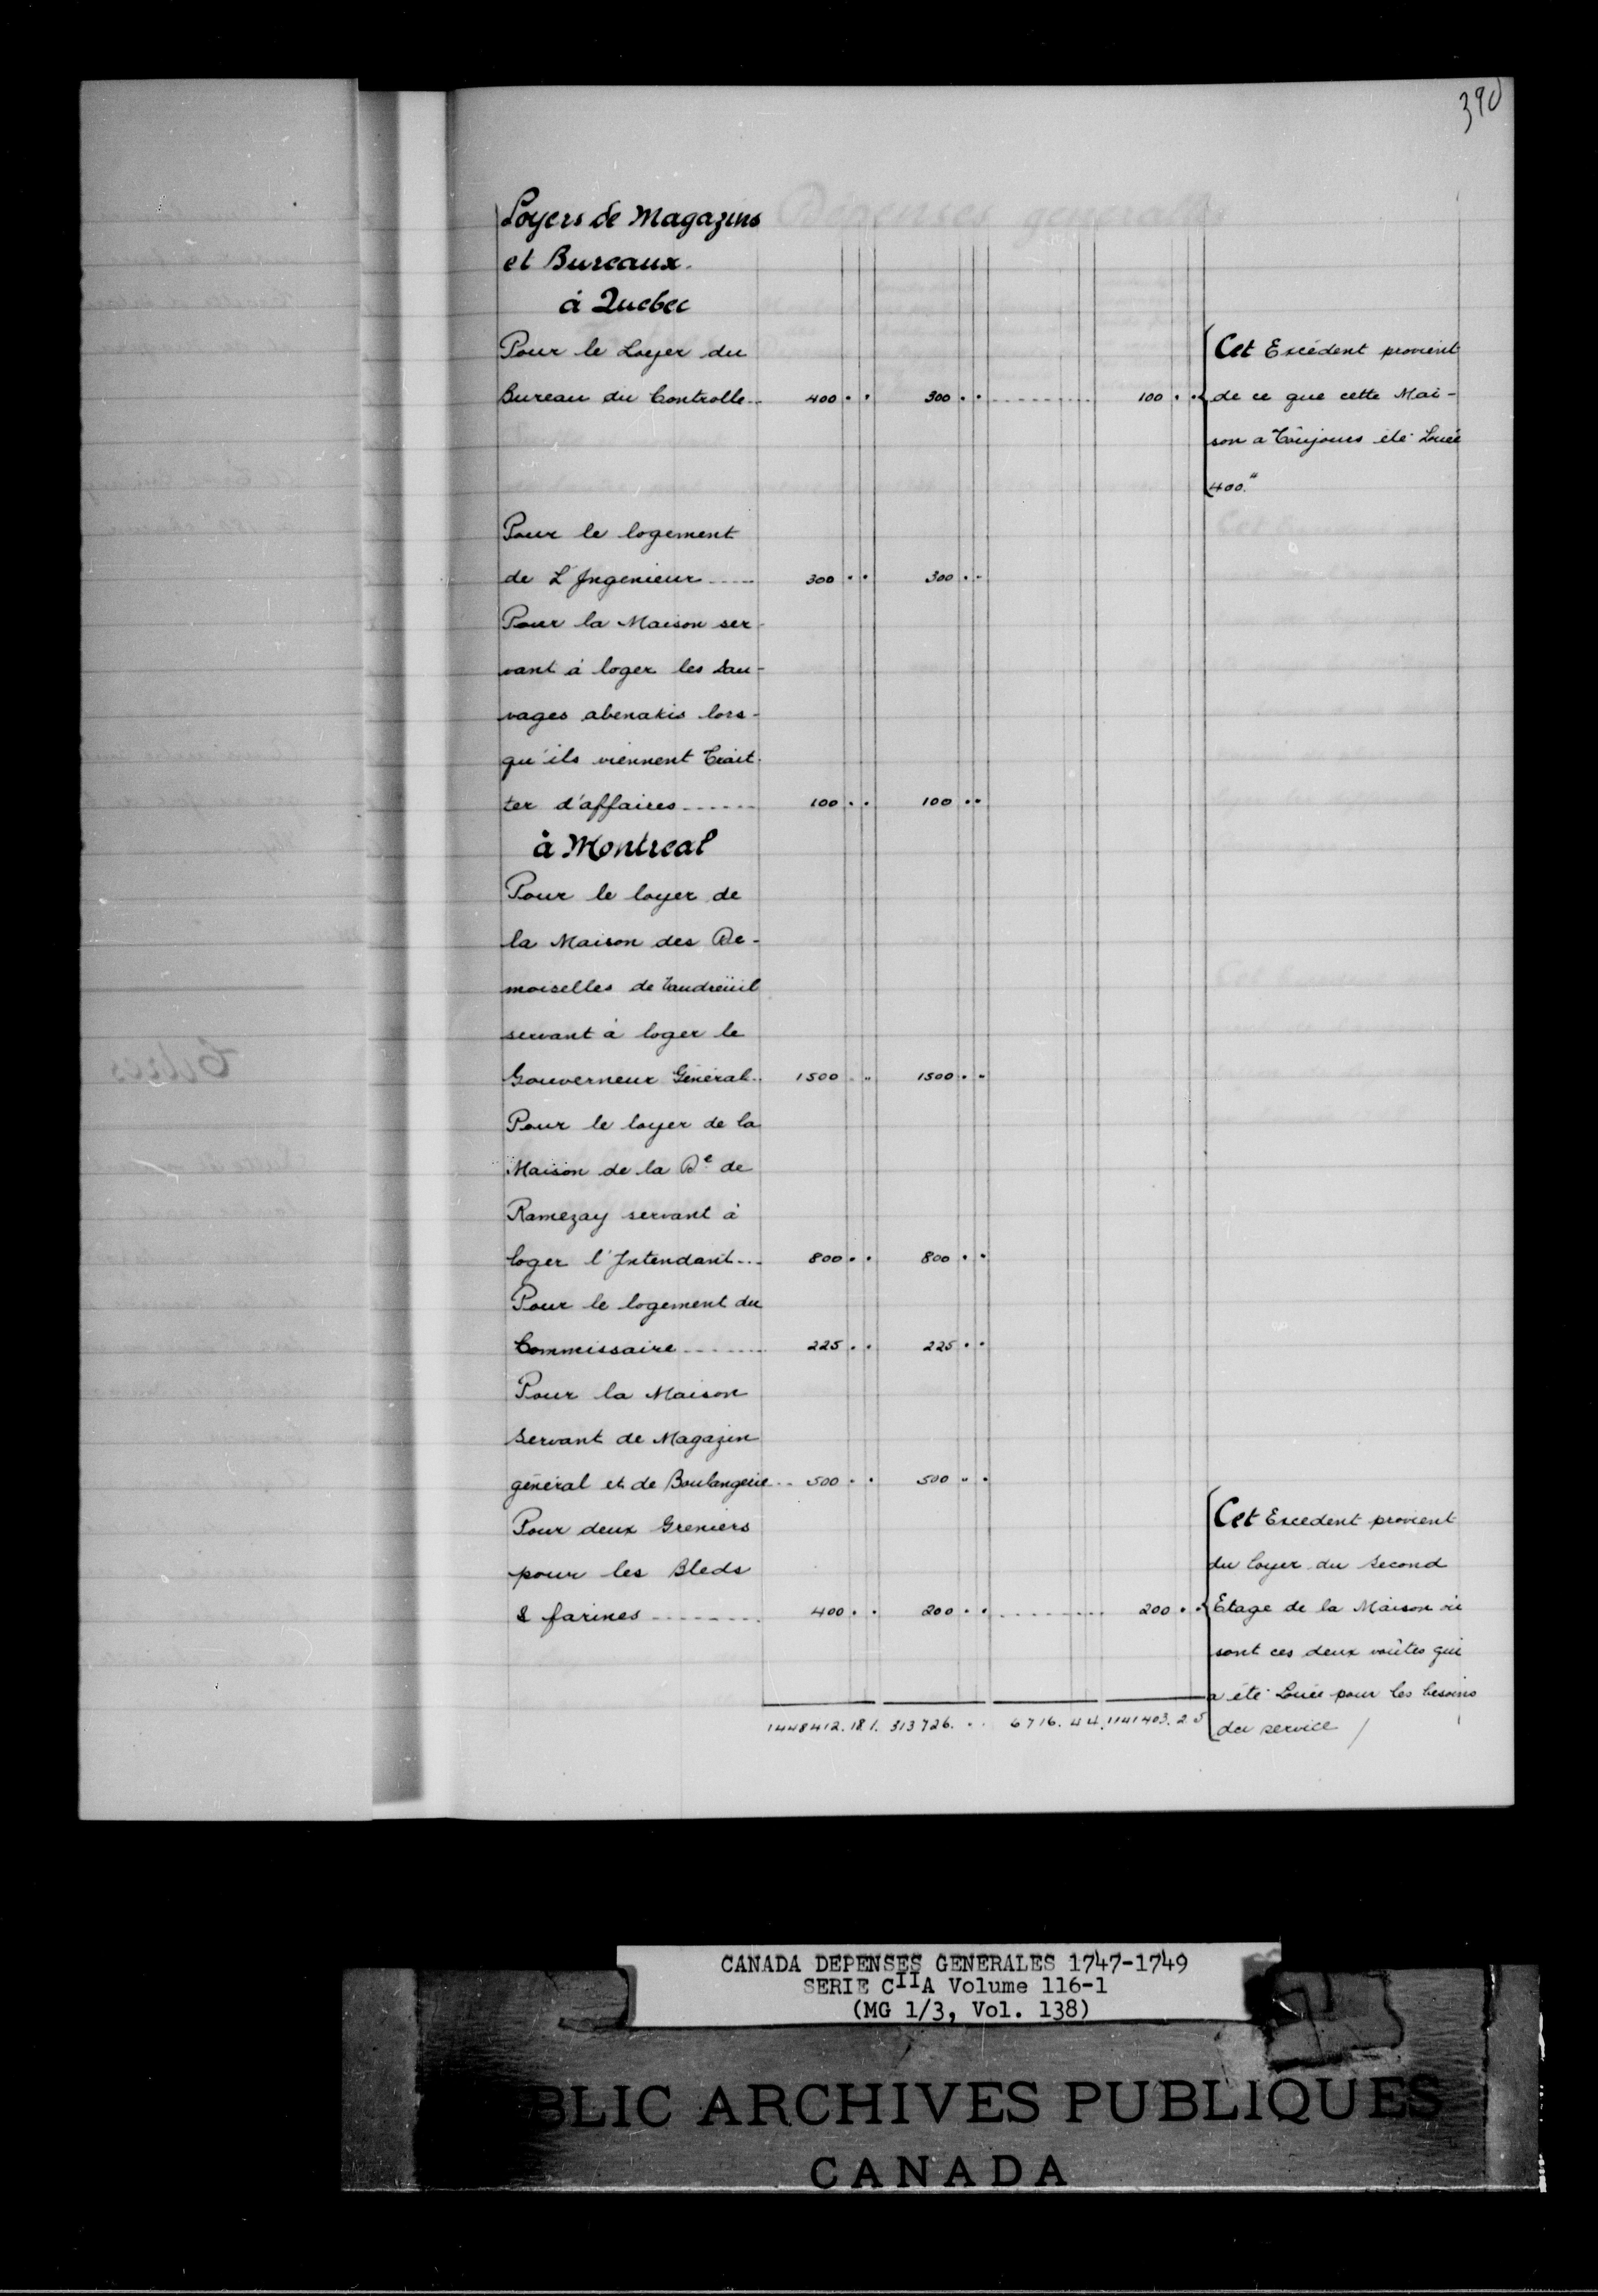 390
Loyers de Magazins
et Bureaux.
à Quebec
Pour le Loyer du
Bureau du Controlle... 400 . . 300 . . ............ 100 . .
Cet Excédent provient
de ce que cette Mai-
son a Toûjours été Louée
400."
Pour le logement
de L'Ingenieur ..... 300 . . 300 . .
Pour la Maison ser-
vant à loger les Sau-
vages abenakis lors-
qu'ils viennent Trait-
ter d'affaires ...... 100 . . 100 . .
à Montreal
Pour le loyer de
la Maison des De-
moiselles de Vaudreüil
servant à loger le
Gouverneur Général.. 1500 . . 1500 . .
Pour le loyer de la
Maison de la De de
Ramezay servant à
loger l'Intendant... 800 . . 800 . .
Pour le logement du
Commissaire ........ 225 . . 225 . .
Pour la Maison
Servant de Magazin
général et de Boulangerie... 500 . . 500 . .
Pour deux Greniers
pour les Bleds
& farines .......... 400 . . 200 . . ............ 200 . .
Cet Excedent provient
du loyer du Second
Etage de la Maison où
sont ces deux voûtes qui
a été Louée pour les besoins
du service /
1448412. 18 1. 313726. . . 6716. 4 4. 1141403. 2 5
CANADA DEPENSES GENERALES 1747-1749
SERIE CIIA Volume 116-1
(MG 1/3, Vol. 138)
BLIC ARCHIVES PUBLIQUES
CANADA